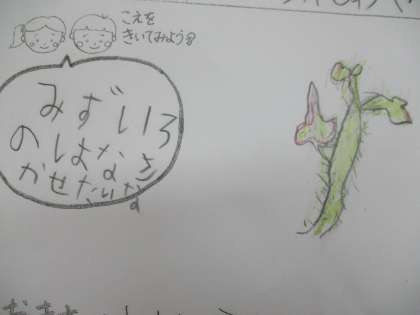 こえを
きいてみよう
みずいろ
のはなさ
かせたいな